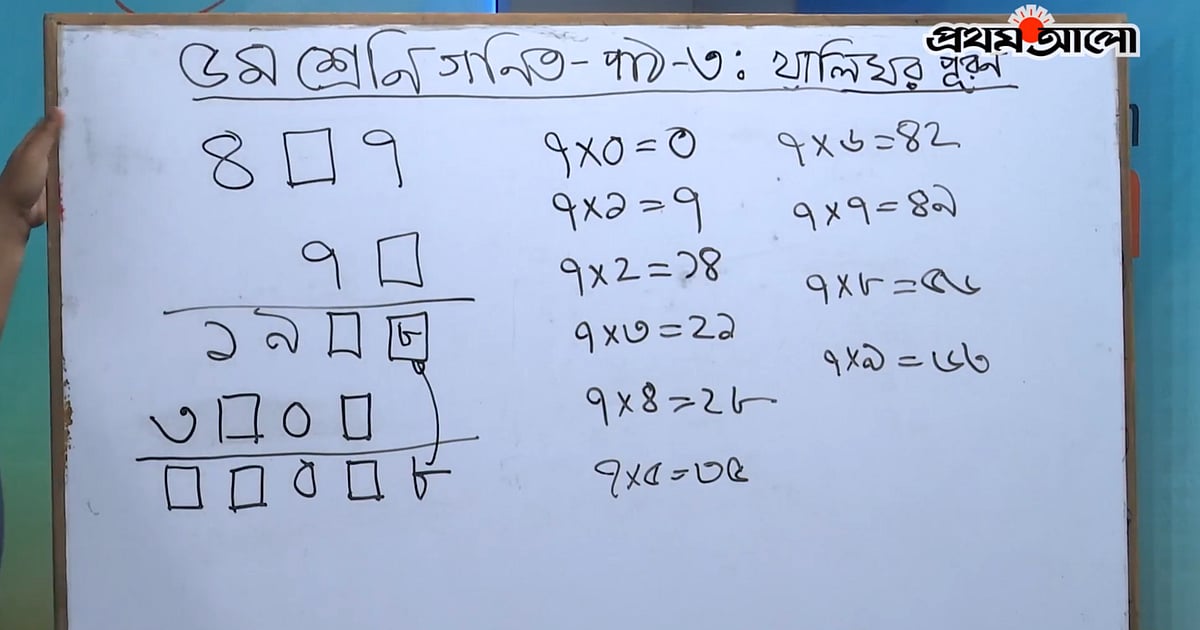 প্রথম আলো
৫ম শ্রেনি গনিত - পাঠ - ৩ : খালিঘর পূরন
৪ □ ৭
৭ □
১ ৯ □ ৮
৩ □ ০ □
□ □ ০ □ ৮
৭×০=০
৭×১=৭
৭×২=১৪
৭×৩=২১
৭×৪=২৮
৭×৫=৩৫
৭×৬=৪২
৭×৭=৪৯
৭×৮=৫৬
৭×৯=৬৩